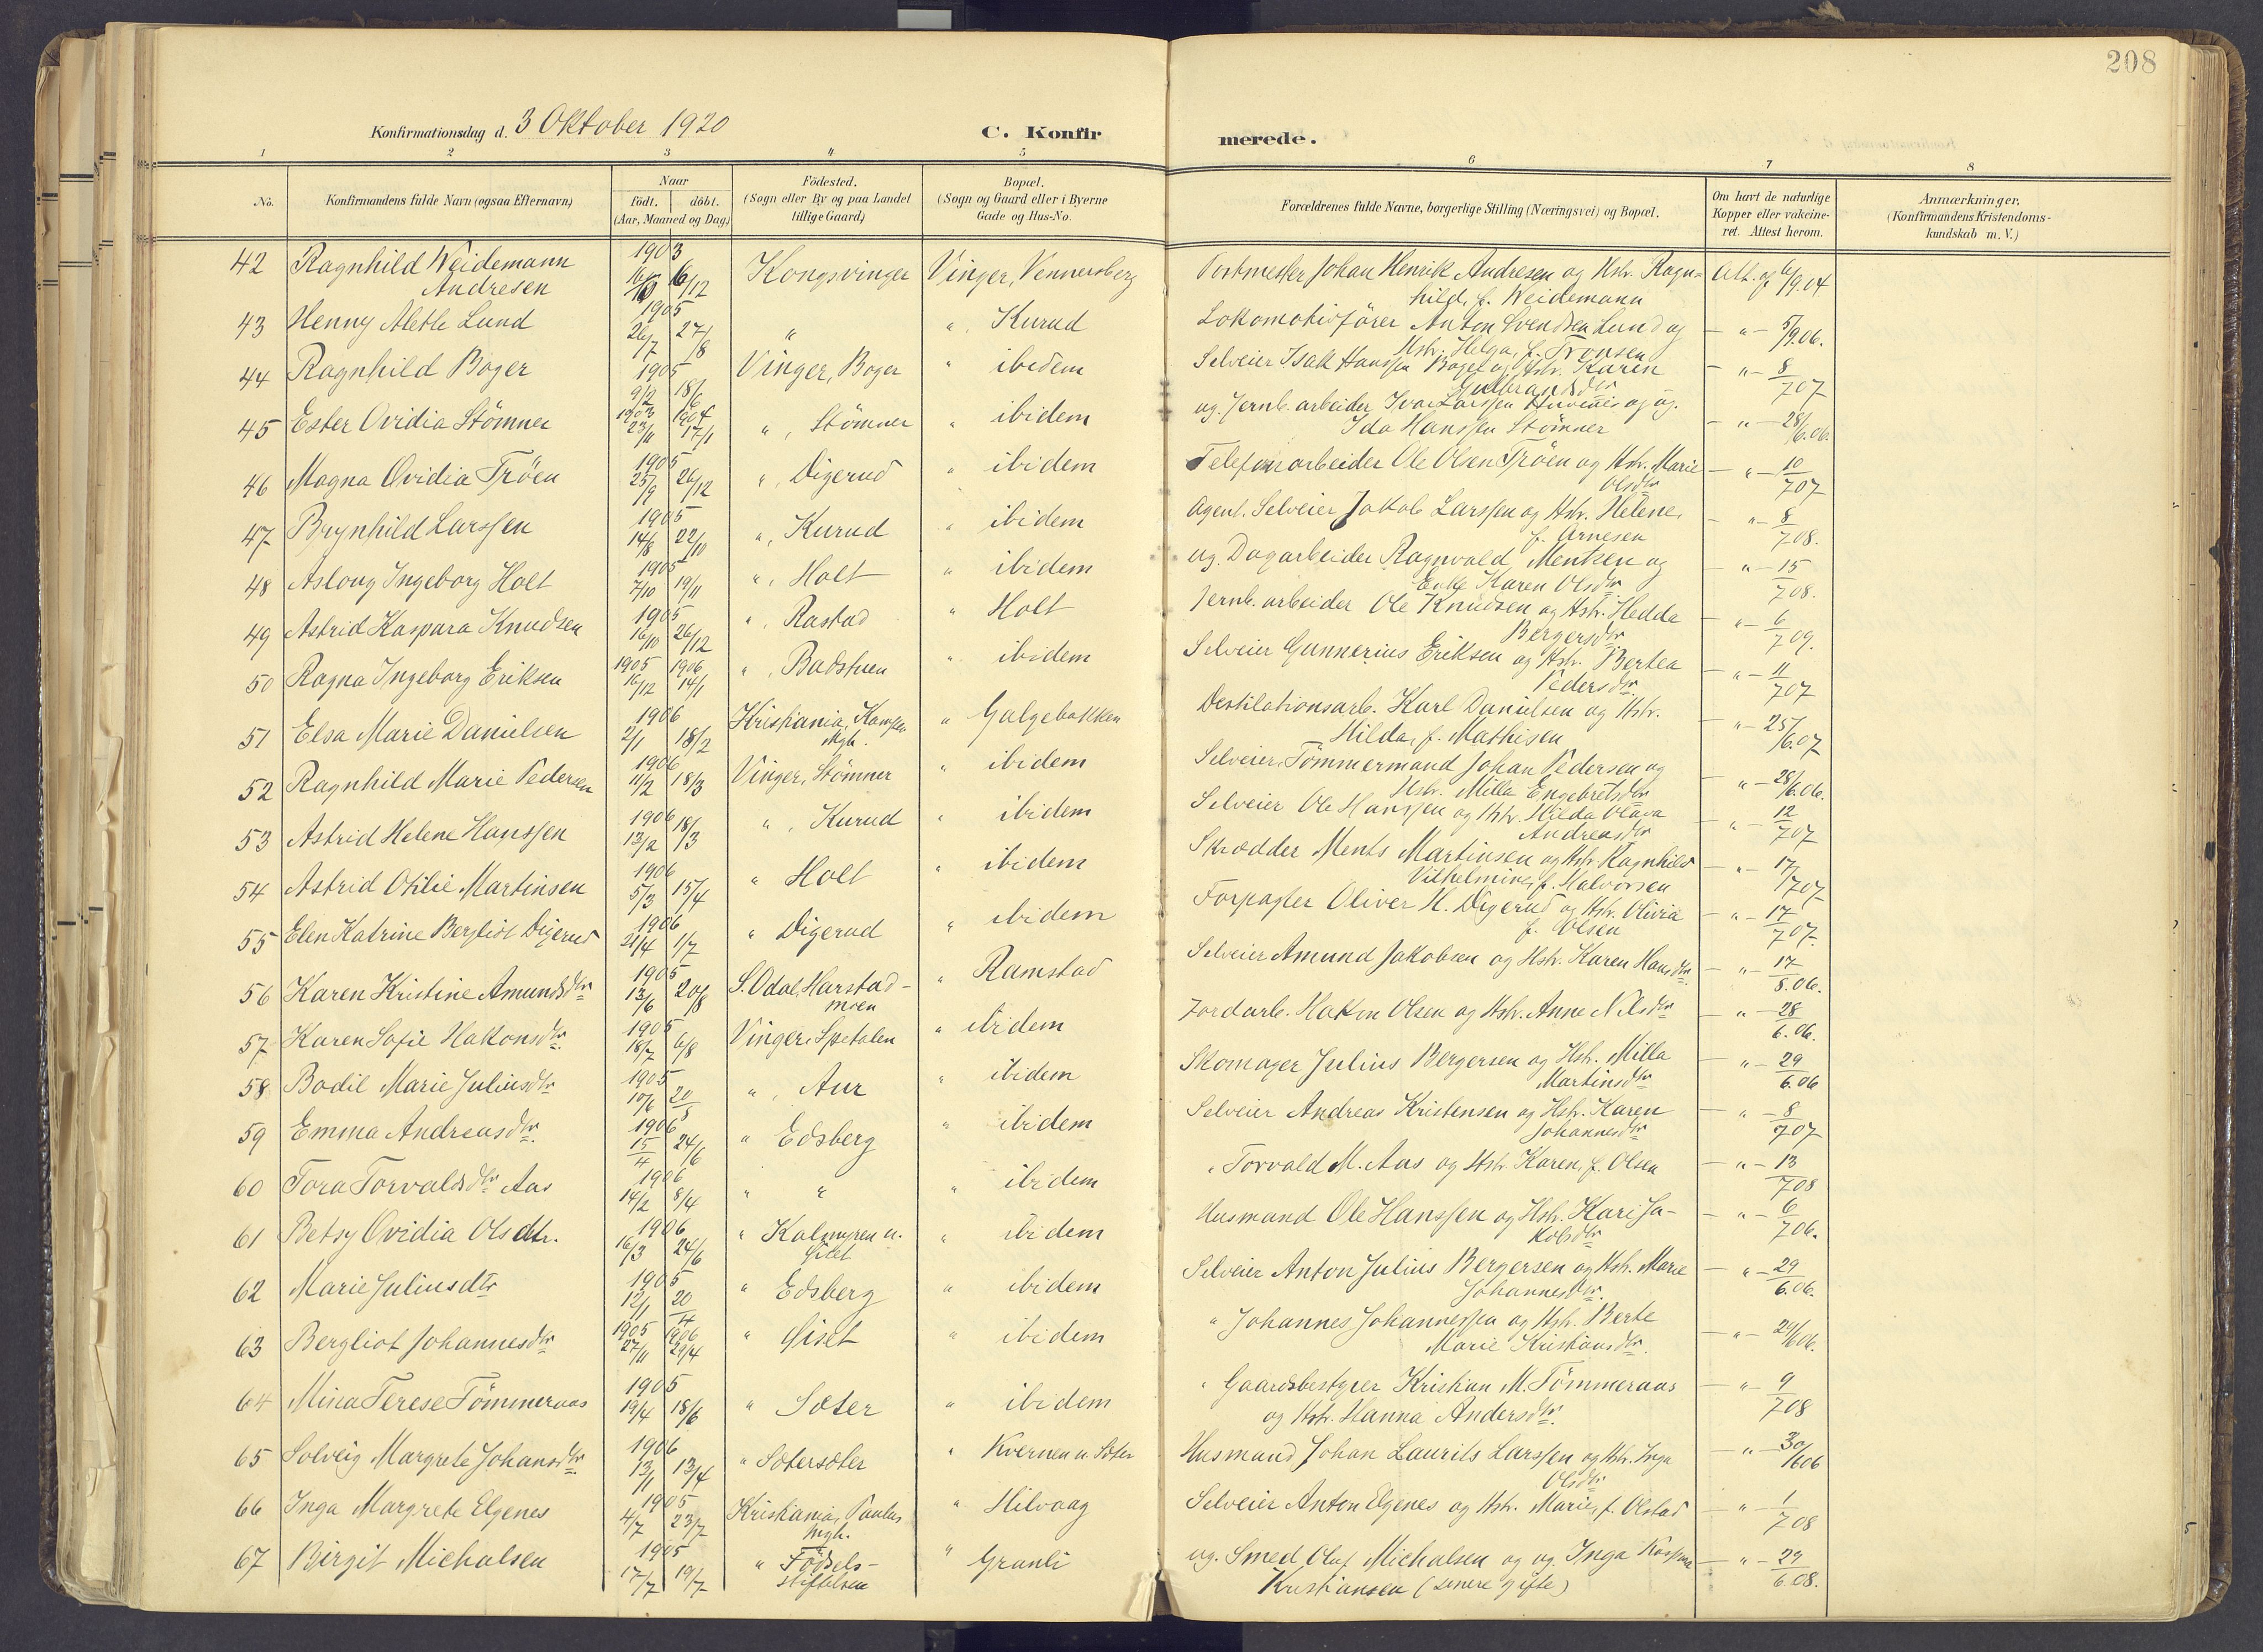 208
Konfirmationsdag d. 3 Oktober 1920
C. Konfirmerede.
1 2 3 4 5 6 7 8
No. | Konfirmandens fulde Navn (ogsaa Efternavn) | Naar födt. döbt. (Aar, Maaned og Dag) | Födested. (Sogn eller By og paa Landet tillige Gaard) | Bopæl. (Sogn og Gaard eller i Byerne Gade og Hus-No. | Forældrenes fulde Navne, borgerlige Stilling (Næringsvei) og Bopæl. | Om havt de naturlige Kopper eller vakcineret. Attest herom. | Anmærkninger. (Konfirmandens Kristendomskundskab m. V.)
42 Ragnhild Weidemann Andresen 1903 6/12 Kongsvinger Vinger, Vennersberg Johan Henrik Andresen og Hstr. Ragnhild, f. Weidemann Att. af 6/9.04
43 Henny Alette Lund 1905 26/7 27/8 " " Kurud Lokomotivförer Anton Svendsen Lund og Hstr. Helga, f. Tronsen " 5/9.06.
44 Ragnhild Boger 1905 9/2 18/6 Vinger, Boger " ibidem Selveier Isak Hanssen Boger og Hstr. Karen Gulbrandsdtr " 8/707
45 Ester Ovidia Stömner 1903 23/11 1904 17/1 ", Stömner " ibidem ug. Jernb. arbeider Ivar Larssen og ug. Ida Hanssen Stömner " 28/6.06.
46 Magna Ovidia Tröen 1905 25/9 26/12 ", Digerud " ibidem Telefonarbeider Ole Olsen Tröen og Hstr. Marie Olsdtr " 10/707
47 Brynhild Larssen 1905 14/8 22/10 ", Kurud " ibidem Agent. Selveier Jakob Larssen og Hstr. Helene, f. Arnesen " 8/708.
48 Aslaug Ingeborg Holt 1905 7/10 19/11 ", Holt " ibidem ug. Dagarbeider Ragnvald Mentsen og Enke Karen Olsdtr " 15/708.
49 Astrid Kaspara Knudsen 1905 16/10 26/12 ", Rastad " Holt Jernb. arbeider Ole Knudsen og Hstr. Hedda Bergersdtr " 6/709.
50 Ragna Ingeborg Eriksen 1905 16/12 1906 14/1 ", Badstuen " ibidem Selveier Gunnerius Eriksen og Hstr. Bertea Pedersdtr. " 11/707
51 Elsa Marie Danielsen 1906 2/1 18/2 Kristiania, Kampen Mgh. " Galgebakken Destilationsarb. Karl Danielsen og Hstr. Hilda, f. Mathisen " 25/6.07
52 Ragnhild Marie Pedersen 1906 11/2 18/3 Vinger, Stömner " ibidem Selveier, Tömmermand Johan Pedersen og Hstr. Milla Engebretsdtr " 28/6.06.
53 Astrid Helene Hanssen 1906 13/2 18/3 ", Kurud " ibidem Selveier Ole Hanssen og Hstr. Hilda Olava Andreasdtr " 12/707
54 Astrid Otilie Martinsen 1906 5/3 15/4 " Holt " ibidem Skrædder Ments Martinsen og Hstr. Ragnhild Vilhelmine, f. Halvorsen " 17/707
55 Elen Katrine Bergliot Digerud 1906 21/4 1/7 " Digerud " ibidem Forpagter Oliver H. Digerud og Hstr. Olivia f. Olsen " 17/707.
56 Karen Kristine Amundsdtr 1905 13/6 20/8 S. Odal, Harstadmoen " Ramstad Selveier Amund Jakobsen og Hstr. Karen Hansdtr. " 17/8.06.
57 Karen Sofie Hakonsdtr. 1905 18/7 6/8 Vinger, Spetalen " ibidem Jordarb. Hakon Olsen og Hstr. Anne Nilsdtr " 28/6.06.
58 Bodil Marie Juliusdtr 1905 10/6 20/8 ", Aur " ibidem Skomager Julius Bergersen og Hstr. Milla Martinsdtr " 29/6.06
59 Emma Andreasdtr. 1906 15/4 24/6 " Edsberg " ibidem Selveier Andreas Kristensen og Hstr. Karen Johannesdtr " 8/707
60 Tora Torvaldsdtr Aas 1906 14/2 8/4 " " " ibidem " Torvald M. Aas og Hstr. Karen, f. Olsen " 13/708
61 Betsy Ovidia Olsdtr. 1906 16/3 24/6 " Kalmyren u. Siset " ibidem Husmand Ole Hanssen og Hstr. Kari Jakobsdtr " 6/706.
62 Marie Juliusdtr 1905 12/1 20/4 " Edsberg " ibidem Selveier Anton Julius Bergersen og Hstr. Marie Johannesdtr. " 29/6.06.
63 Bergliot Johannesdtr 1905 27/11 1906 29/4 " Siset " ibidem " Johannes Johannessen og Hstr. Berte Marie Kristiansdtr. " 29/606.
64 Mina Terese Tömmeraas 1905 19/4 18/6 " Sæter " ibidem " Gaardsbestyrer Kristian M. Tömmeraas og Hstr. Hanna Andersdtr. " 9/708
65 Solveig Margrete Johansdtr 1906 13/1 13/4 " Sætersæter " Kvernen u. Sæter Husmand Johan Laurits Larssen og Hstr. Inga Olsdtr " 30/606
66 Inga Margrete Elgenes 1905 4/7 23/7 Kristiania, Paulus Mgh. " Hilvaag Selveier Anton Elgenes og Hstr. Marie, f. Olstad " 1/708
67 Birgit Michalsen 1905 17/7 19/7 " Födselsstiftelsen " Granli ug. Smed Olaf Michalsen og ug. Inga Kaspara Kristiansen (senere gifte) " 29/6.08.